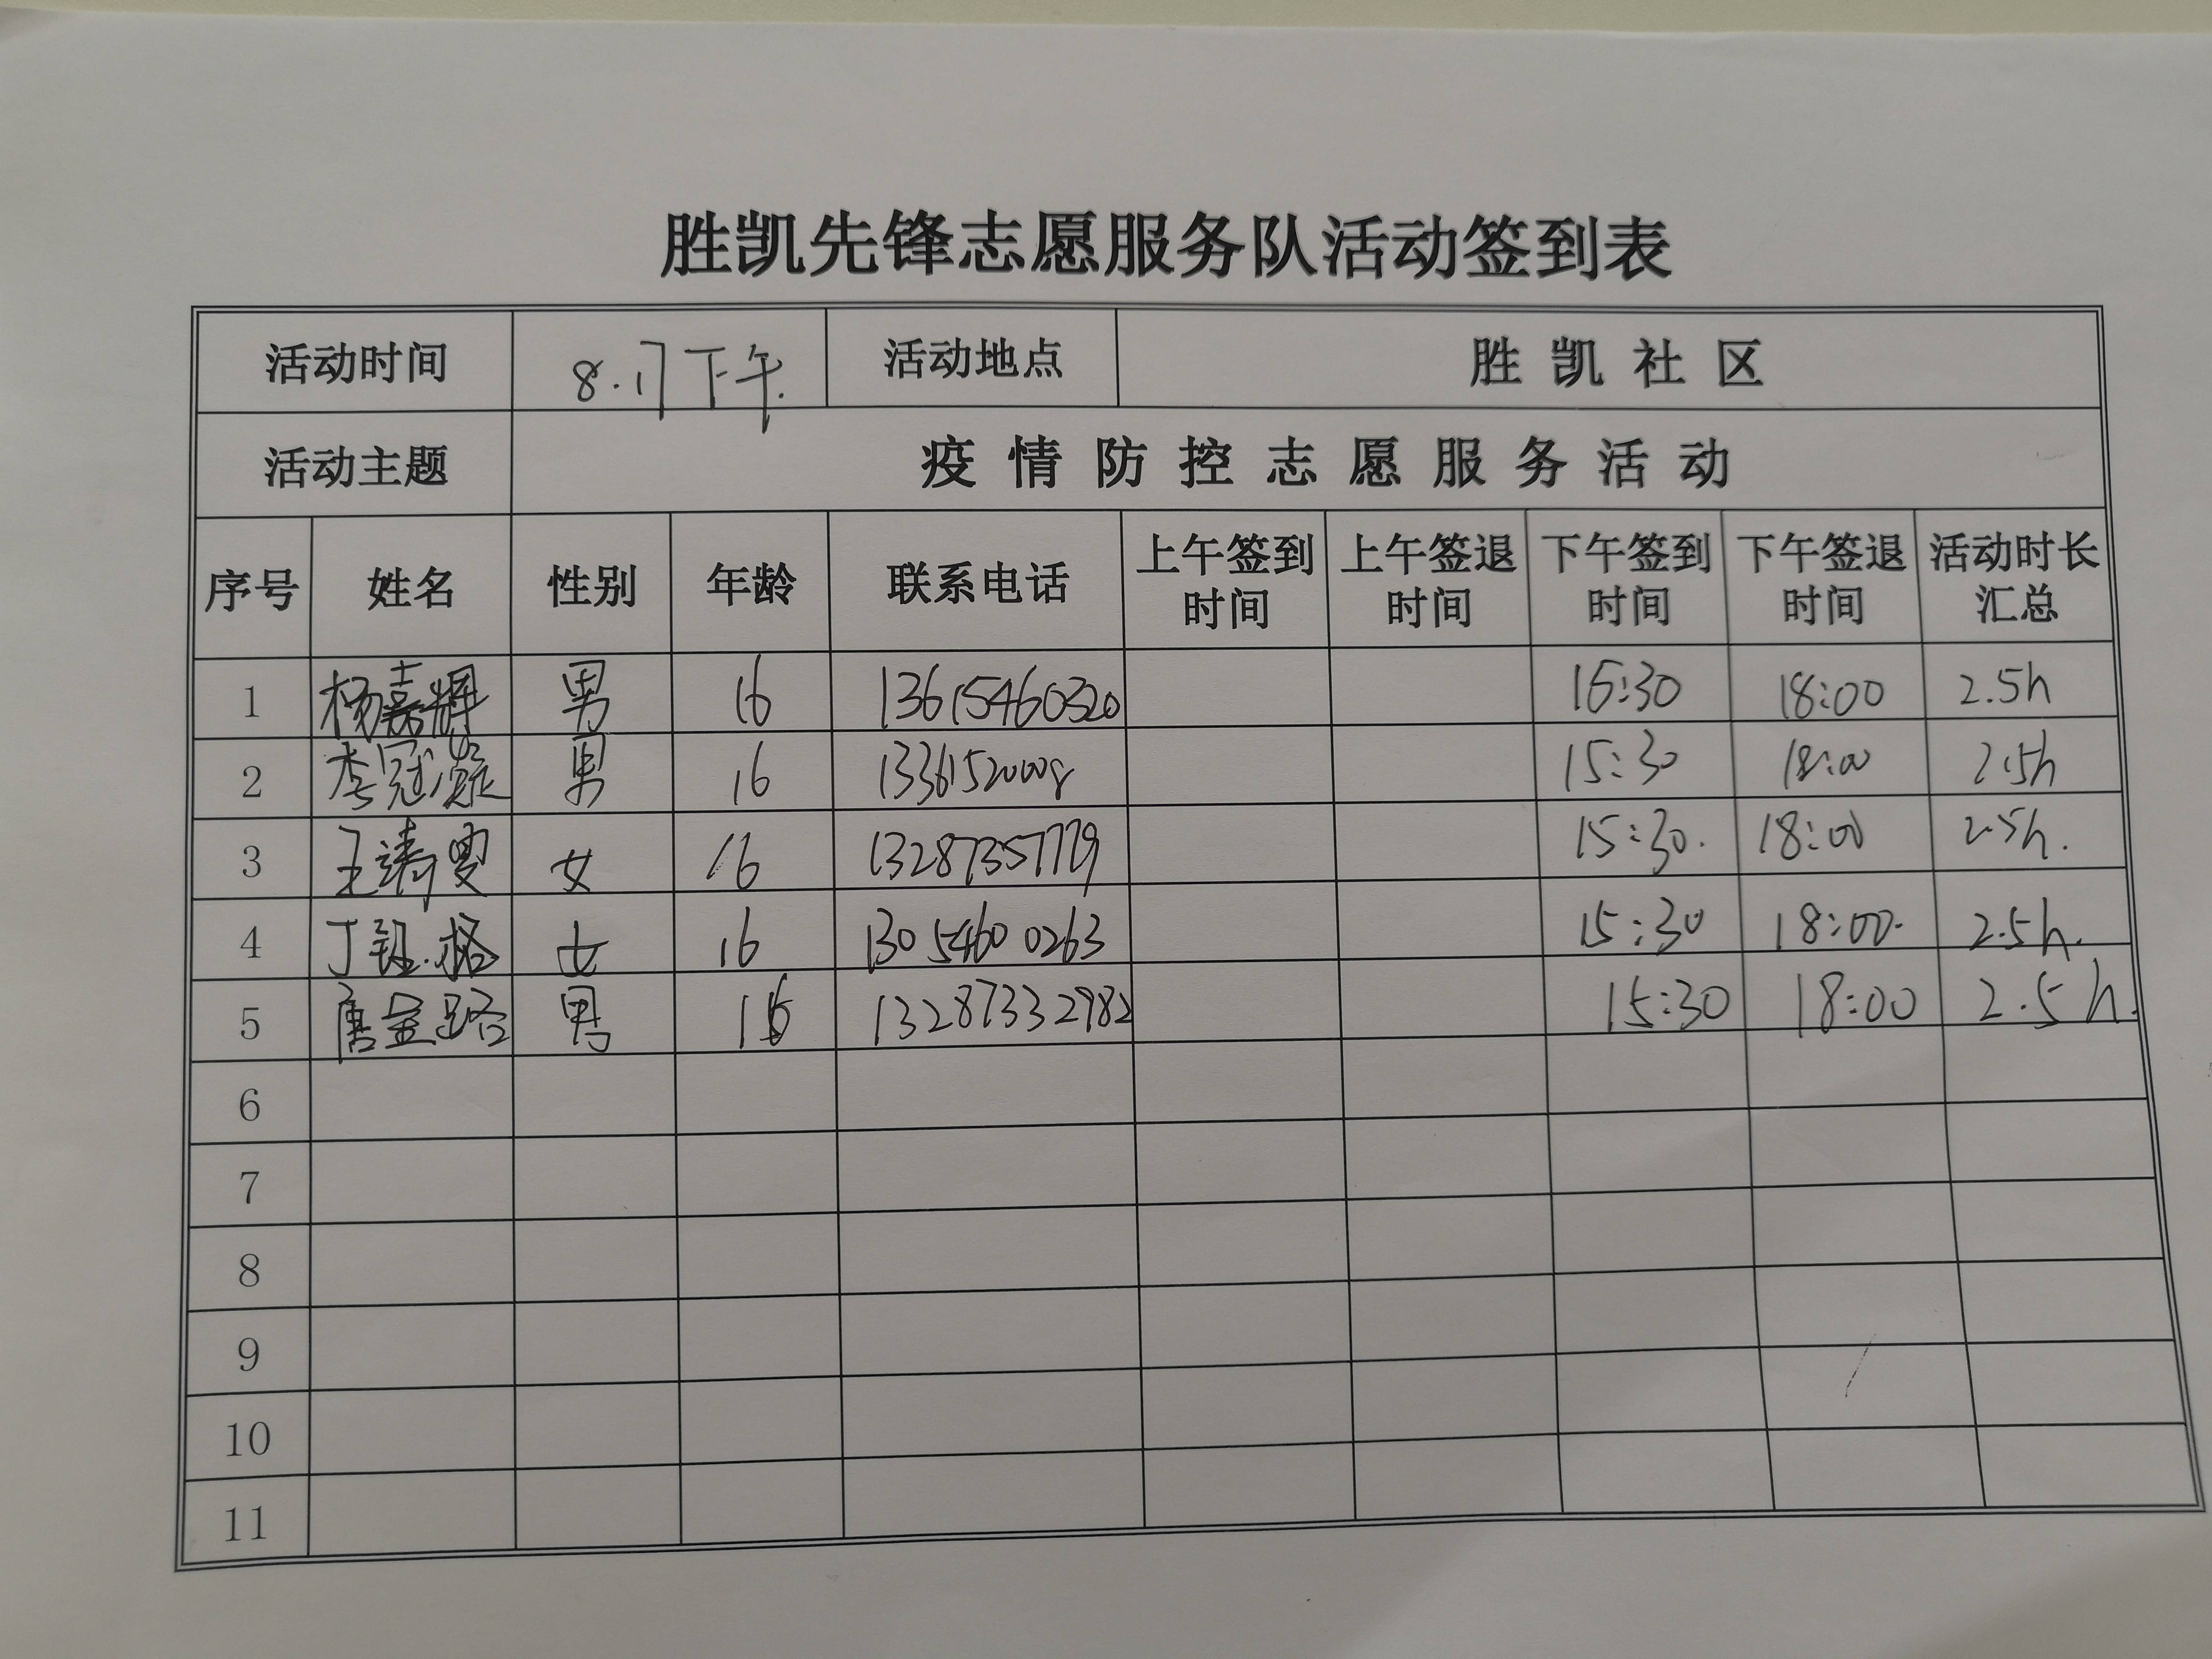 胜凯先锋志愿服务队活动签到表
活动时间 8.17下午. 活动地点 胜凯社区
活动主题 疫情防控志愿服务活动
序号 姓名 性别 年龄 联系电话 上午签到时间 上午签退时间 下午签到时间 下午签退时间 活动时长汇总
1 杨嘉辉 男 16 13615460320 18:00 2.5h
2 李冠 男 16 15:30 18:00 2.5h
3 王 女 16 15:30. 18:00 2.5h.
4 丁钰格 女 16 13054600263 15:30 18:00. 2.5h.
5 唐金路 男 16 13287332982 15:30 18:00 2.5h.
6
7
8
9
10
11